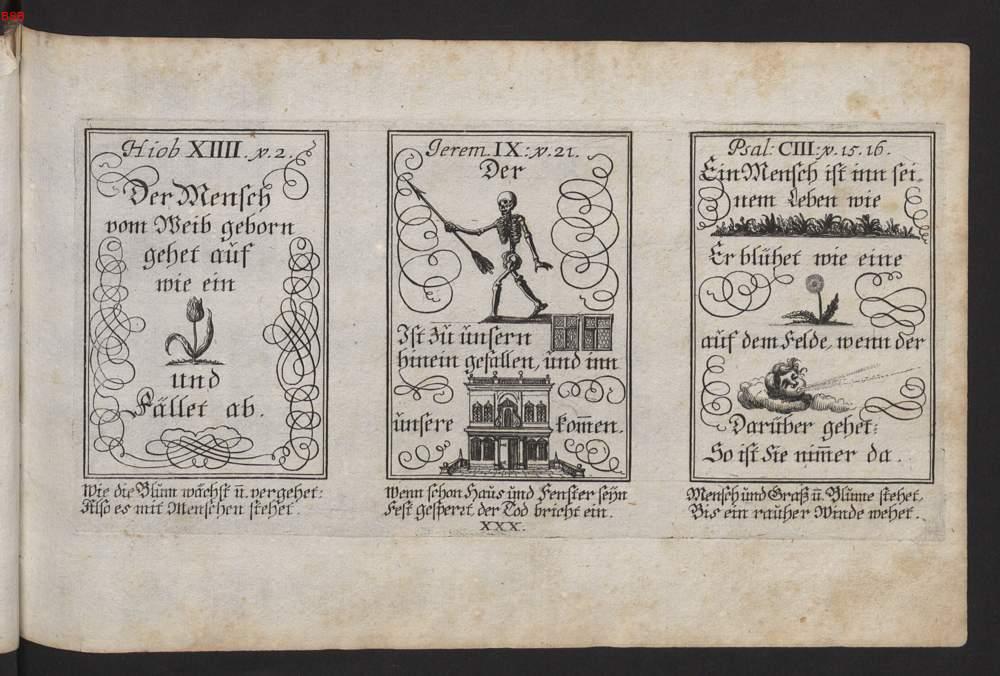 BSB
Hiob XIIII. v. 2.
Der Mensch
vom Weib geborn
gehet auf
wie ein
und
Fället ab.
Wie die Blům wächst ū. vergehet:
Also es mit Menschen stehet.
Jerem. IX: v. 21.
Der
Ist zů ůnsern
hinein gefallen, ůnd inn
ůnsere kom̄en.
Wenn schon Haůs ůnd Fenster seÿn
Fest gesperrt der Tod bricht ein.
XXX.
Psal: CIII: v. 15. 16.
Ein Mensch ist inn sei-
nem Leben wie
Er blühet wie eine
aůf dem Felde, wenn der
Darüber gehet:
So ist Sie nim̄er da.
Mensch ůnd Graß ū. Blůme stehet,
Bis ein raůher Winde wehet.